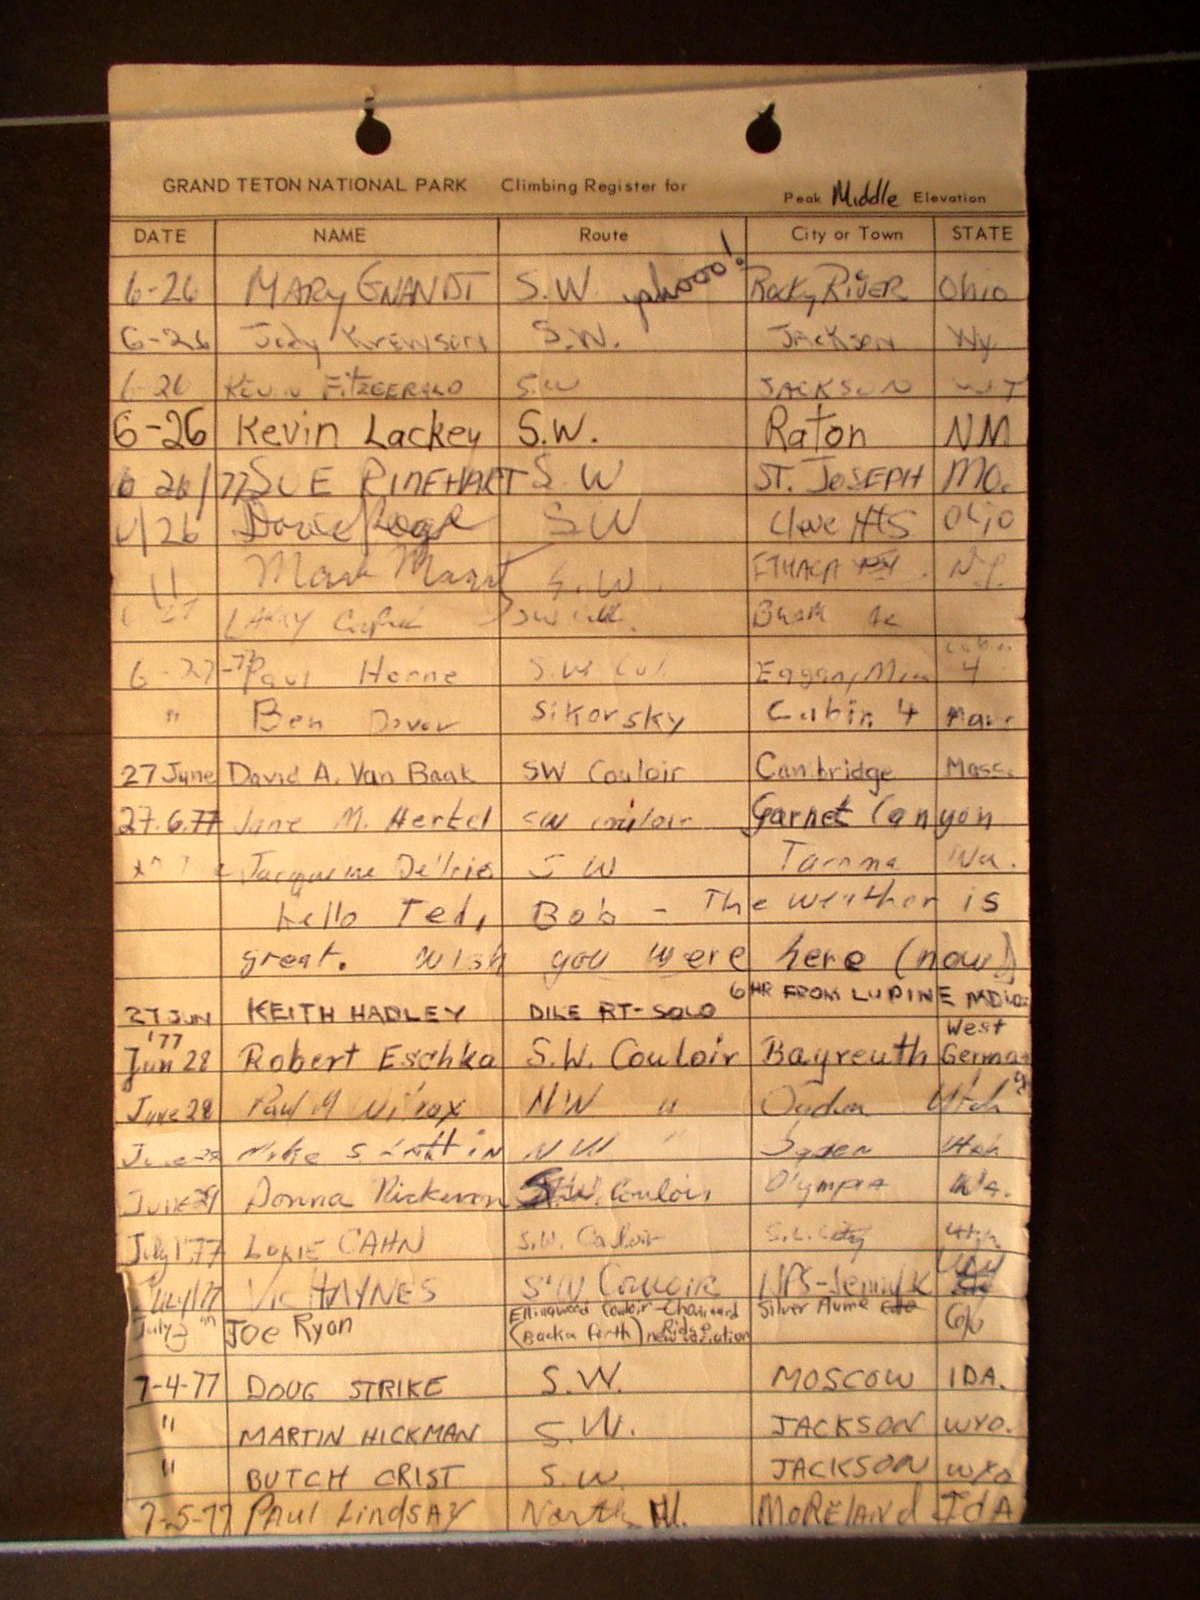 GRAND TETON NATIONAL PARK Climbing Register for Peak Middle Elevation
DATE NAME Route City or Town STATE
6-26 MARY GNANDT S.W. yahooo! Rocky RIVER Ohio
6-26 Judy Krewson S.W. JACKSON Wy
6-26 KEVIN FITZGERALD S.W JACKSON WY
6-26 Kevin Lackey S.W. Raton NM
6 26/77 SUE RINEHART S.W ST. JOSEPH MO.
6/26 SW Cleve HTS Ohio
" Mark S.W. ITHACA N.Y.
LARRY SW
6-27-77 Paul Horne S.W Col. Eagan, Minn 4
" Ben Dover Sikorsky Cabin 4
27 June David A. Van Baak SW Couloir Cambridge Mass.
27.6.77 Jane M. Hertel SW couloir Garnet Canyon
Jacqueline S W Wa.
hello Ted, Bob - The weather is
great. wish you were here (now!)
27 JUN '77 KEITH HADLEY DIKE RT-SOLO 6 HR FROM LUPINE MDWS
Jun 28 Robert Eschka S.W. Couloir Bayreuth West Germany
June 28 Paul M Wilcox NW " Ogden Utah
June 28 Mike NW " Ogden Utah
June 29 Donna Rickerson S.W. Couloir Olympia Wa.
July 1 '77 LORIE CAHN S.W. Couloir S.L. City Utah
July/77 Vic HAYNES S.W COULOIR NPS-Jenny Lk
July 3 "" Joe Ryan Ellingwood Couloir-Chouinard Ridge (Back & Forth) new variation Silver Plume Colo
7-4-77 DOUG STRIKE S.W. MOSCOW IDA.
" MARTIN HICKMAN S.W. JACKSON WYO.
" BUTCH CRIST S.W. JACKSON WYO
7-5-77 PAUL LindSAY North MoRELAnd IdA